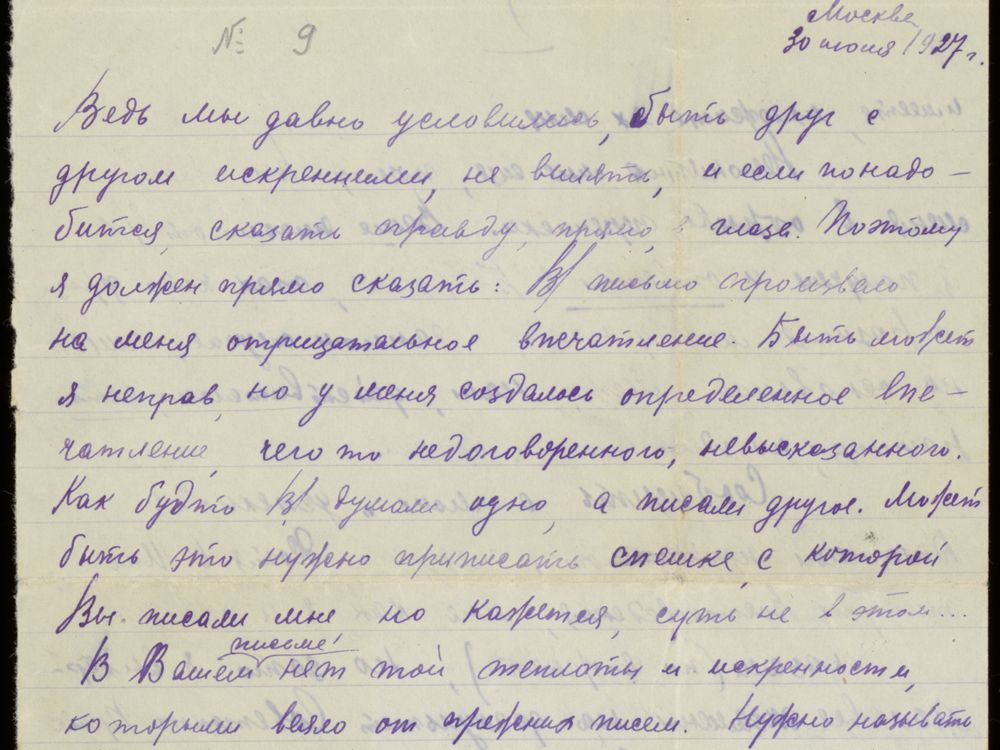 № 9
Москва
30 июня 1927 г.
Ведь мы давно условились, быть друг с
другом искренними, не вилять, и если понадо-
бится, сказать правду, прямо, в глаза. Поэтому
я должен прямо сказать: В/ письмо произвело
на меня отрицательное впечатление. Быть может
я неправ, но у меня создалось определенное впе-
чатление, чего то недоговоренного, невысказанного.
Как будто В/ думали одно, а писали другое. Может
быть это нужно приписать спешке, с которой
Вы писали мне но кажется, суть не в этом...
В Вашем письме нет той теплоты и искренности,
которыми веяло от прежних писем. Нужно называть